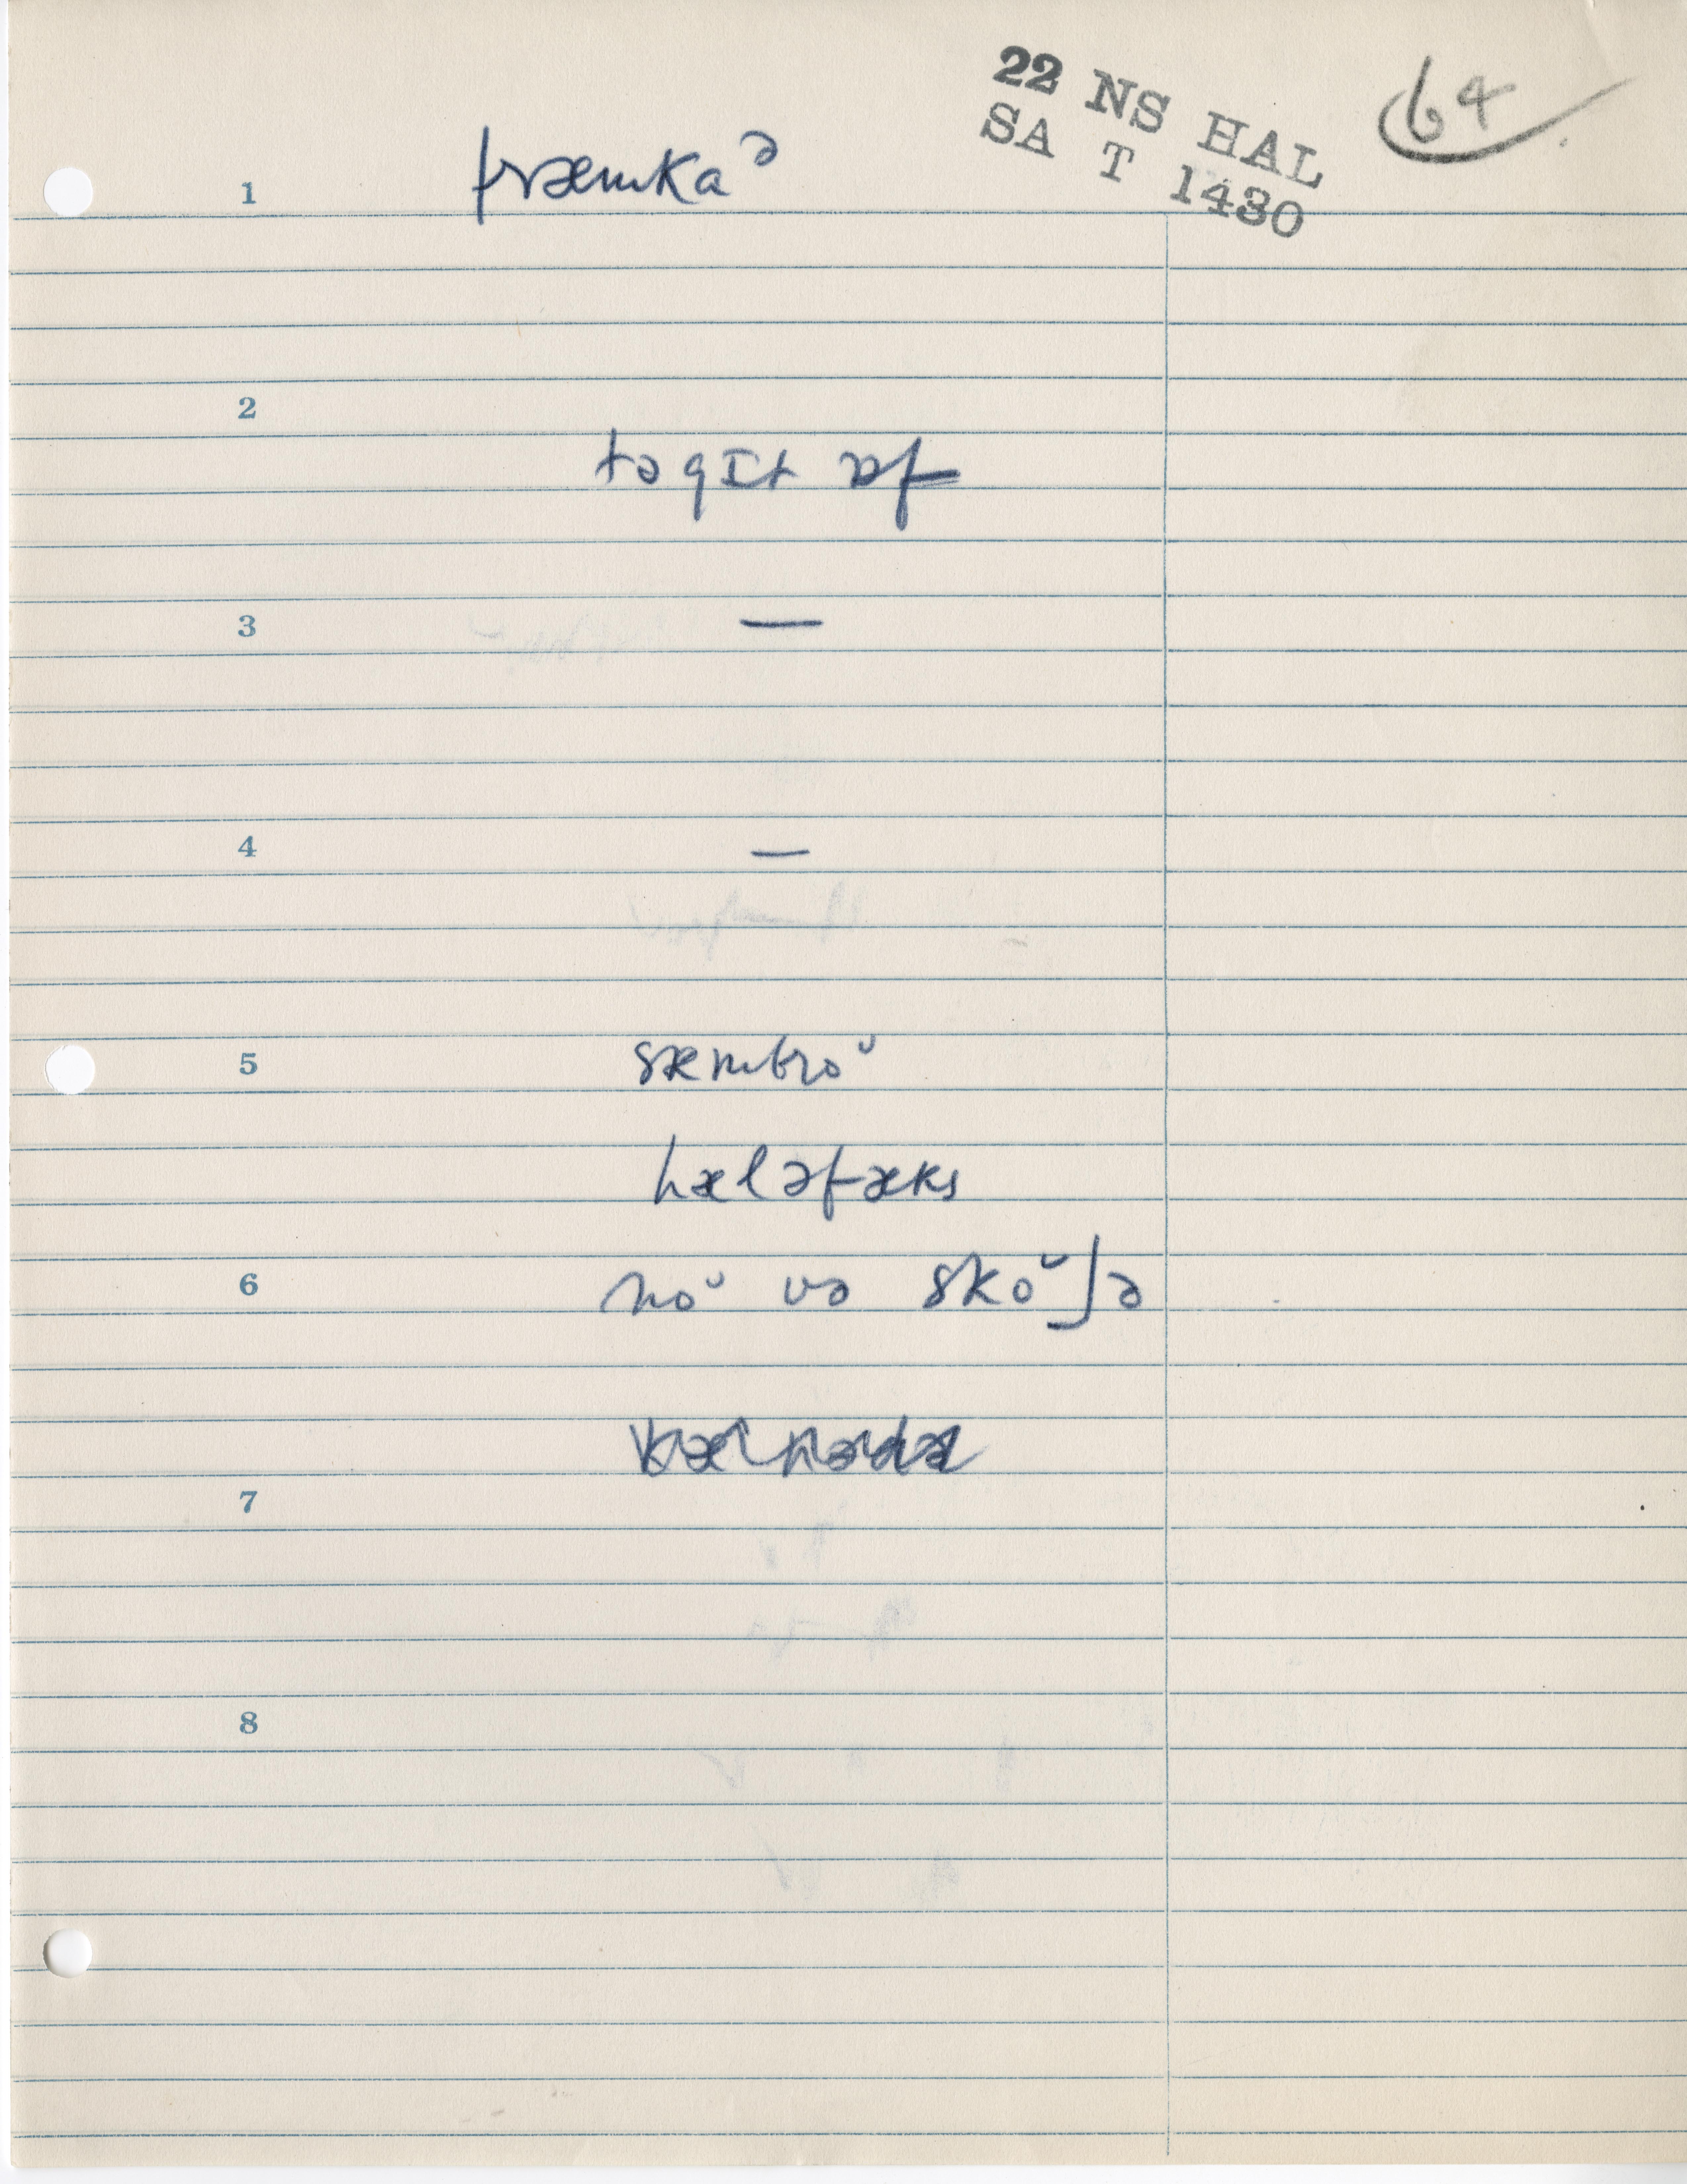 22 NS HAL
SA T 1430
64
1 træmkaᵊ
2
tə gɪt ɒf
3 —
4 —
5 sæmbroᵘ
hæləfæks
6 noᵘ və skoᵘʃə
7
8